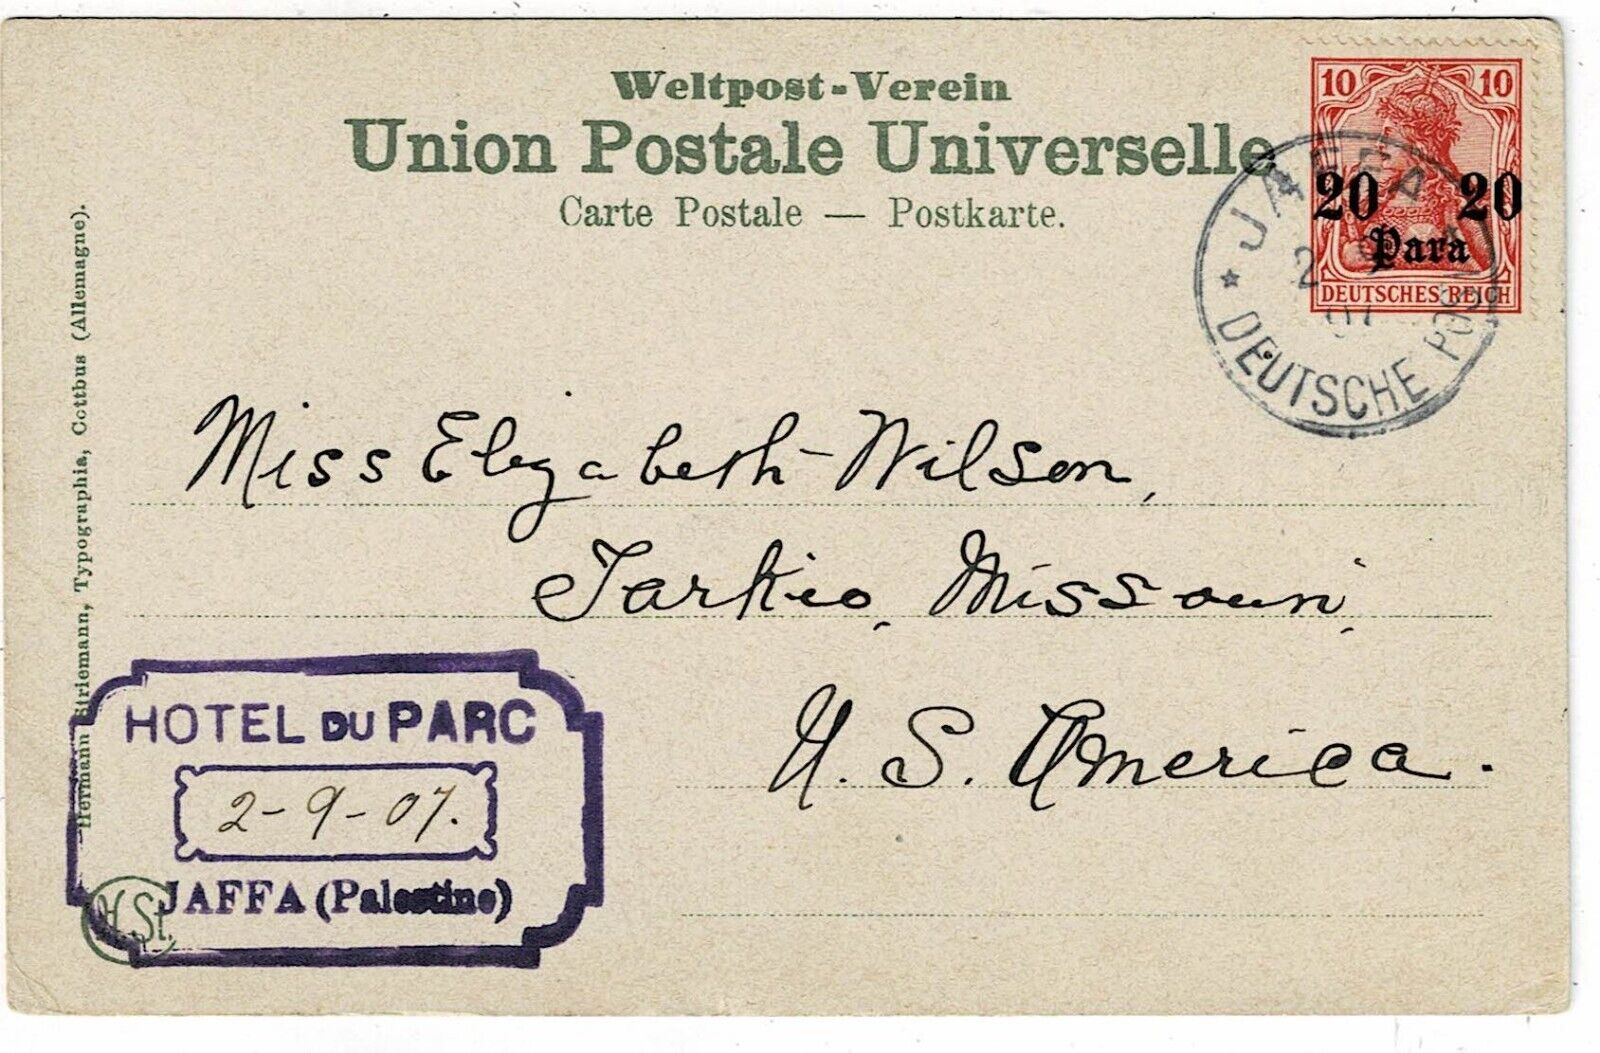 Weltpost-Verein
Union Postale Universelle
Carte Postale — Postkarte.
10 10
20 20
Para
DEUTSCHES REICH
JAFFA
2 9
07
DEUTSCHE POST
Miss Elizabeth Wilson,
Tarkio, Missouri,
U. S. America.
Hermann Striemann, Typographia, Cottbus (Allemagne).
HOTEL DU PARC
2-9-07.
JAFFA (Palestine)
H.St.